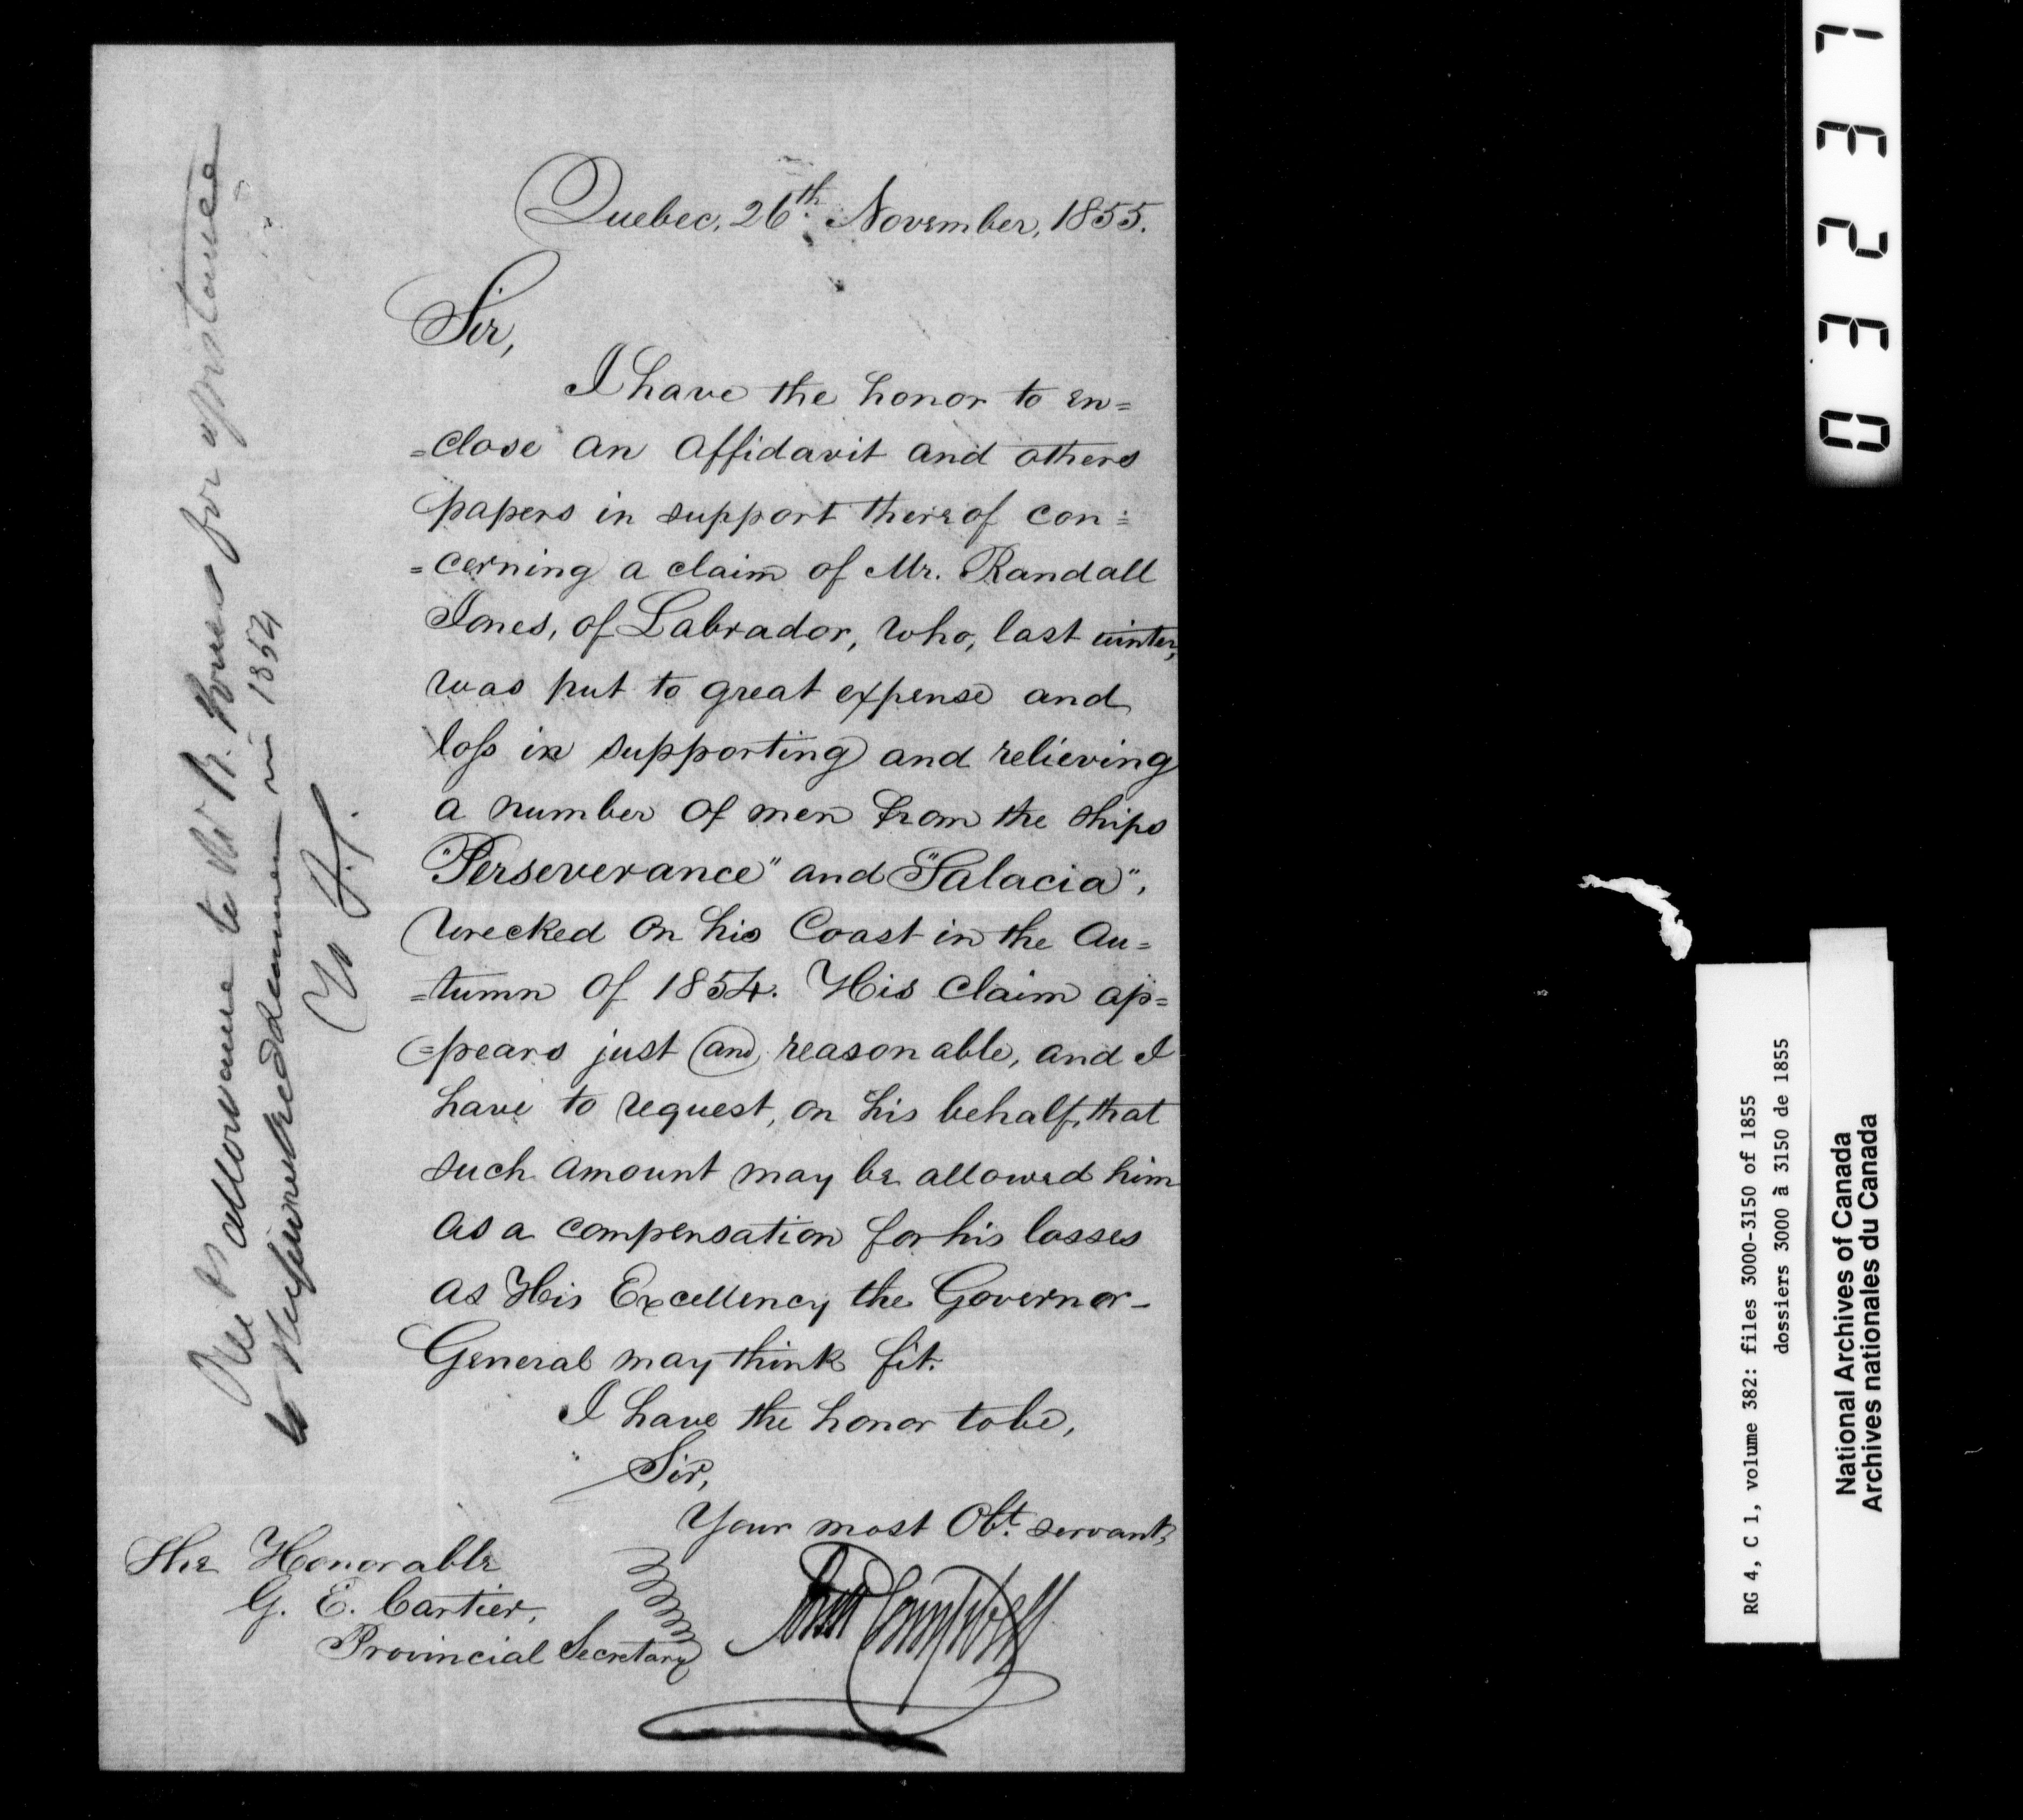 Quebec, 26th. November, 1855.
Sir,
I have the honor to en=
=close an affidavit and others
papers in support thereof con=
=cerning a claim of Mr. Randall
Jones, of Labrador, who, last winter,
was put to great expense and
loss in supporting and relieving
a number of men from the ships
"Perseverance" and "Salacia",
wrecked on his Coast in the Au=
=tumn of 1854. His claim ap=
=pears just and reasonable, and I
have to request, on his behalf, that
such amount may be allowed him
as a compensation for his losses
as His Excellency the Governor-
General may think fit.
I have the honor to be,
Sir,
Your most Obt. servant,
Campbell
The Honorable
G. E. Cartier,
Provincial Secretary
allowance to Mr R. Jones for assistance
to shipwrecked seamen in 1854
03237
RG 4, C 1, volume 382: files 3000-3150 of 1855
dossiers 3000 à 3150 de 1855
National Archives of Canada
Archives nationales du Canada